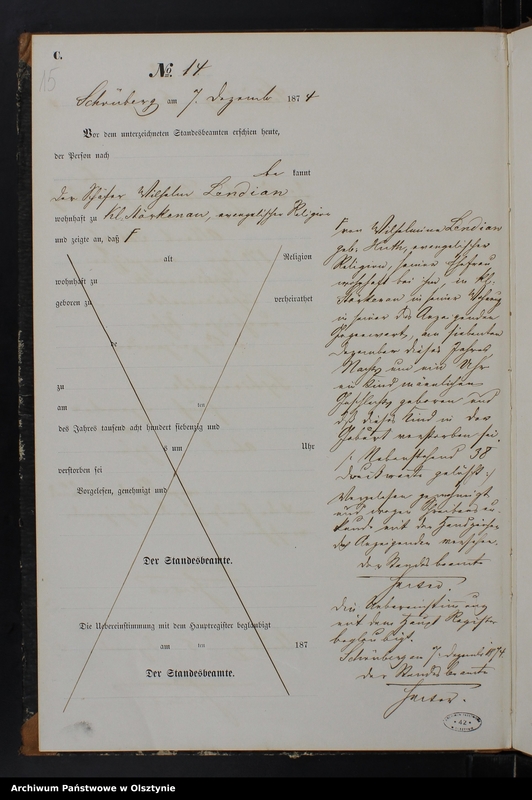 C.
15
№ 14
Schönberg am 7. Dezember 1874
Vor dem unterzeichneten Standesbeamten erschien heute,
der Person nach
be kannt
der Schäfer Wilhelm Lendian
wohnhaft zu Kl. Stärkenau, evangelischer Religion
und zeigte an, daß
alt Religion
wohnhaft zu
geboren zu verheirathet
zu
am ten
des Jahres tausend acht hundert siebenzig und
s um Uhr
verstorben sei
Vorgelesen, genehmigt und
Der Standesbeamte.
Die Uebereinstimmung mit dem Hauptregister beglaubigt
am ten 187
Der Standesbeamte.
Frau Wilhelmine Lendian
geb. Huth, evangelischer
Religion, seiner Ehefrau
wohnhaft bei ihm, in Kl.
Stärkenau in seiner Wohnung
in seiner des Anzeigenden
Gegenwart, am siebenten
Dezember dieses Jahres,
Nachts um ein Uhr
ein Kind männlichen
Geschlechts geboren und
daß dieses Kind in der
Geburt verstorben sei.
/: Nebenstehend 38
Druckworte gelöscht :/
Vorgelesen genehmigt
und wegen Schreibensun-
kunde mit den Handzeichen
des Anzeigenden versehen.
Der Standesbeamte
Die Uebereinstimmung
mit dem Haupt Register
beglaubigt.
Schönberg am 7. Dezember 1874
Der Standesbeamte
42
Archiwum Państwowe w Olsztynie